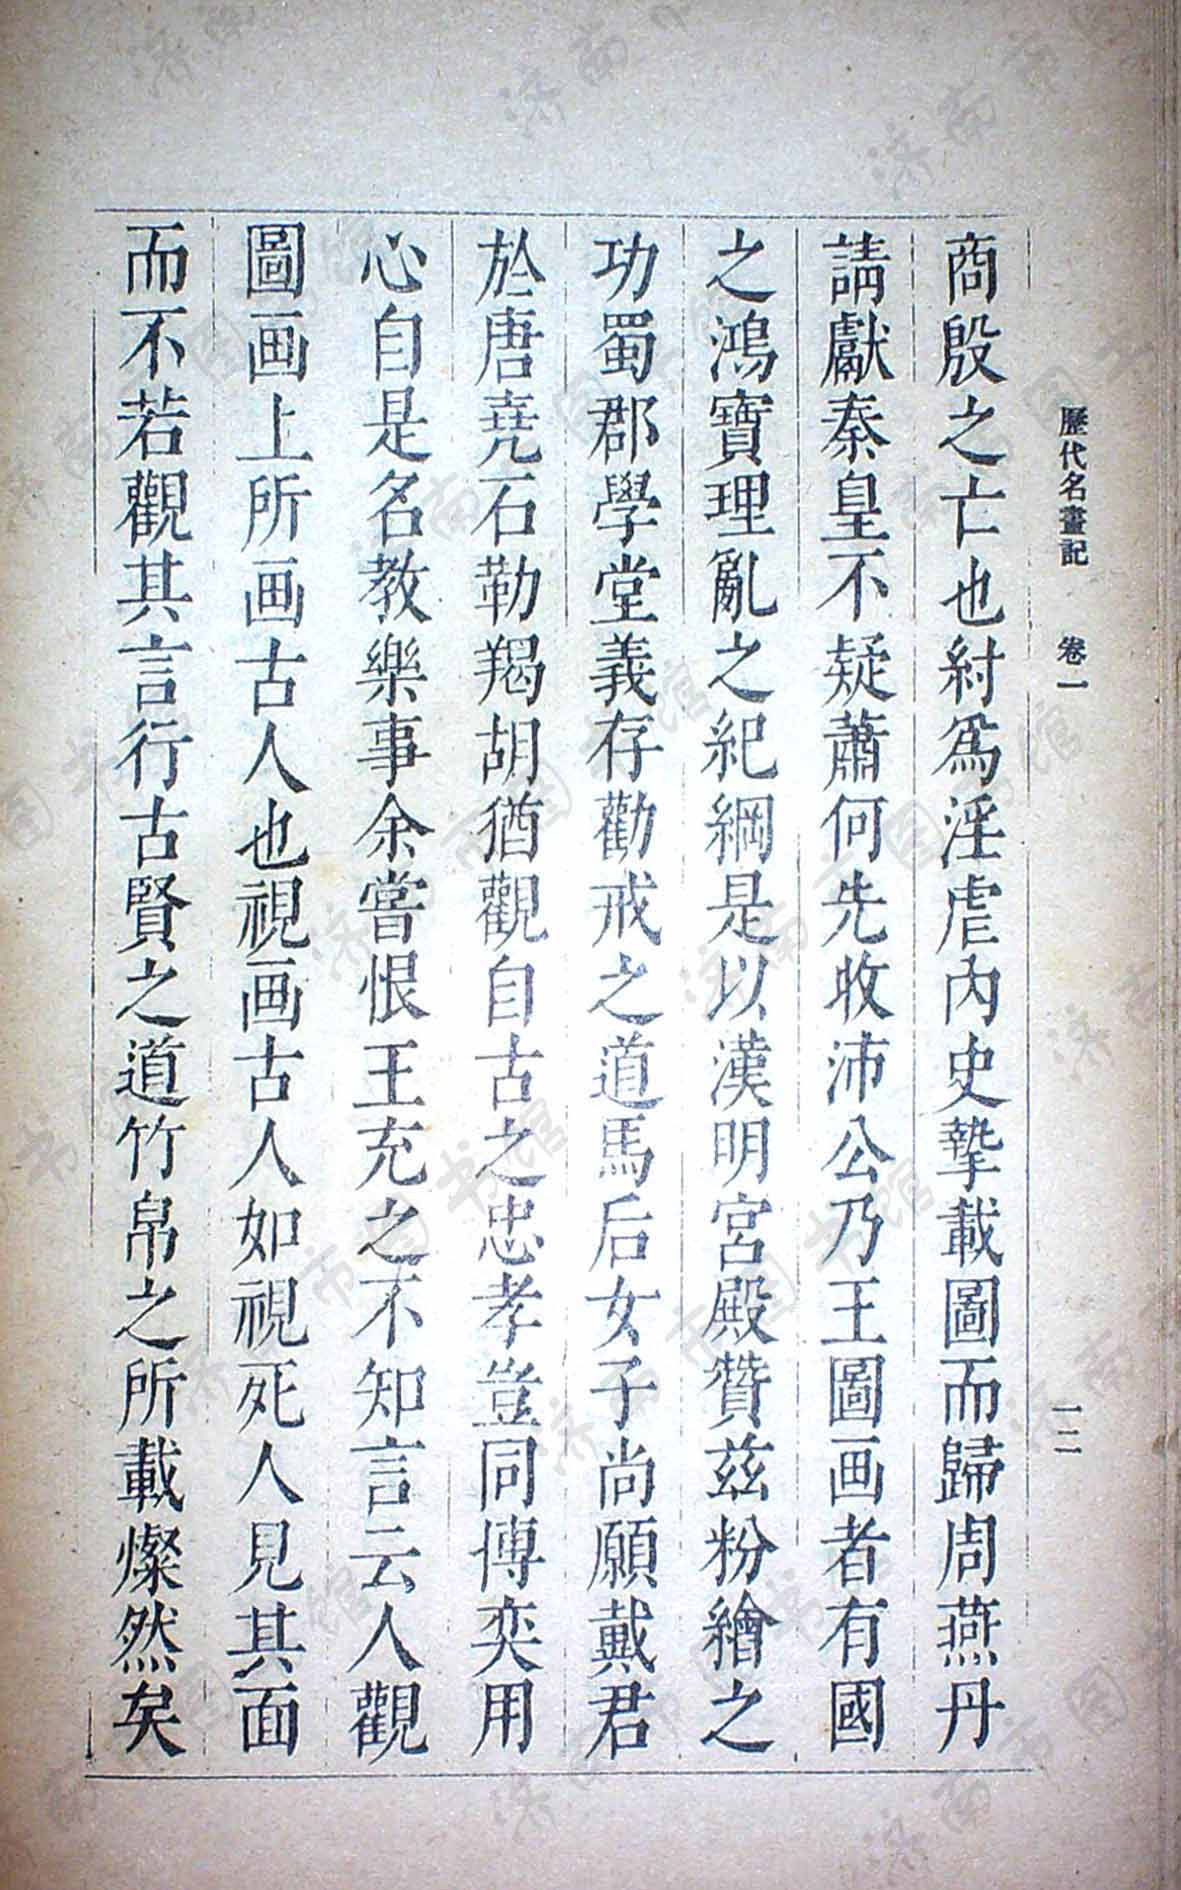 歷代名畫記 卷一 一二
商殷之亡也紂爲淫虐內史摯載圖而歸周燕丹
請獻秦皇不疑蕭何先收沛公乃王圖画者有國
之鴻寶理亂之紀綱是以漢明宮殿贊茲粉繪之
功蜀郡學堂義存勸戒之道馬后女子尚願戴君
於唐堯石勒羯胡猶觀自古之忠孝豈同博奕用
心自是名教樂事余嘗恨王充之不知言云人觀
圖画上所画古人也視画古人如視死人見其面
而不若觀其言行古賢之道竹帛之所載燦然矣
济南市图书馆